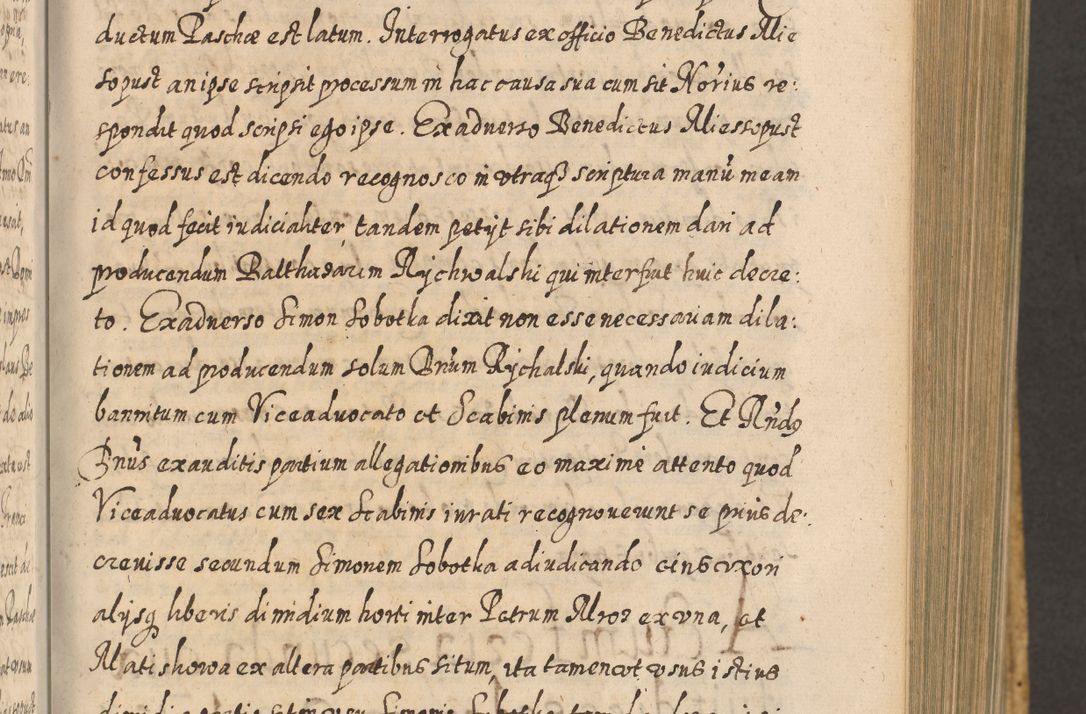 ductum Paschæ est latum. Interrogatus ex officio Benedictus Mie
sopust an ipse scripsit processum in hac causa sua cum sit Norius re:
spondit quod scripsi ego ipse. Exaduerso Benedictus Miessopust
confessus est dicendo recognosco in vtraq3 scriptura manū meam
id quod fecit iudicialiter, tandem petijt sibi dilationem dari ad
producendum Balthasarem Rychwalski qui interfuit huic decre:
to. Exaduerso Simon Sobotka dixit non esse necessariam dila:
tionem ad producendum solum Dnūm Rychalski, quando iudicium
bannitum cum Viceaduocato et Scabinis plenum fuit. Et Rnds
Dnūs exauditis partium allegationibus eo maximè attento quod
Viceaduocatus cum sex Scabinis iurati recognouerunt se prius de:
creuisse secundum Simonem Sobotka adiudicando eius vxori
alijsq liberis dimidium horti inter Petrum Mroz ex vna, et
Matiskowa ex altera partibus situm, ita tamen vt vsus istius